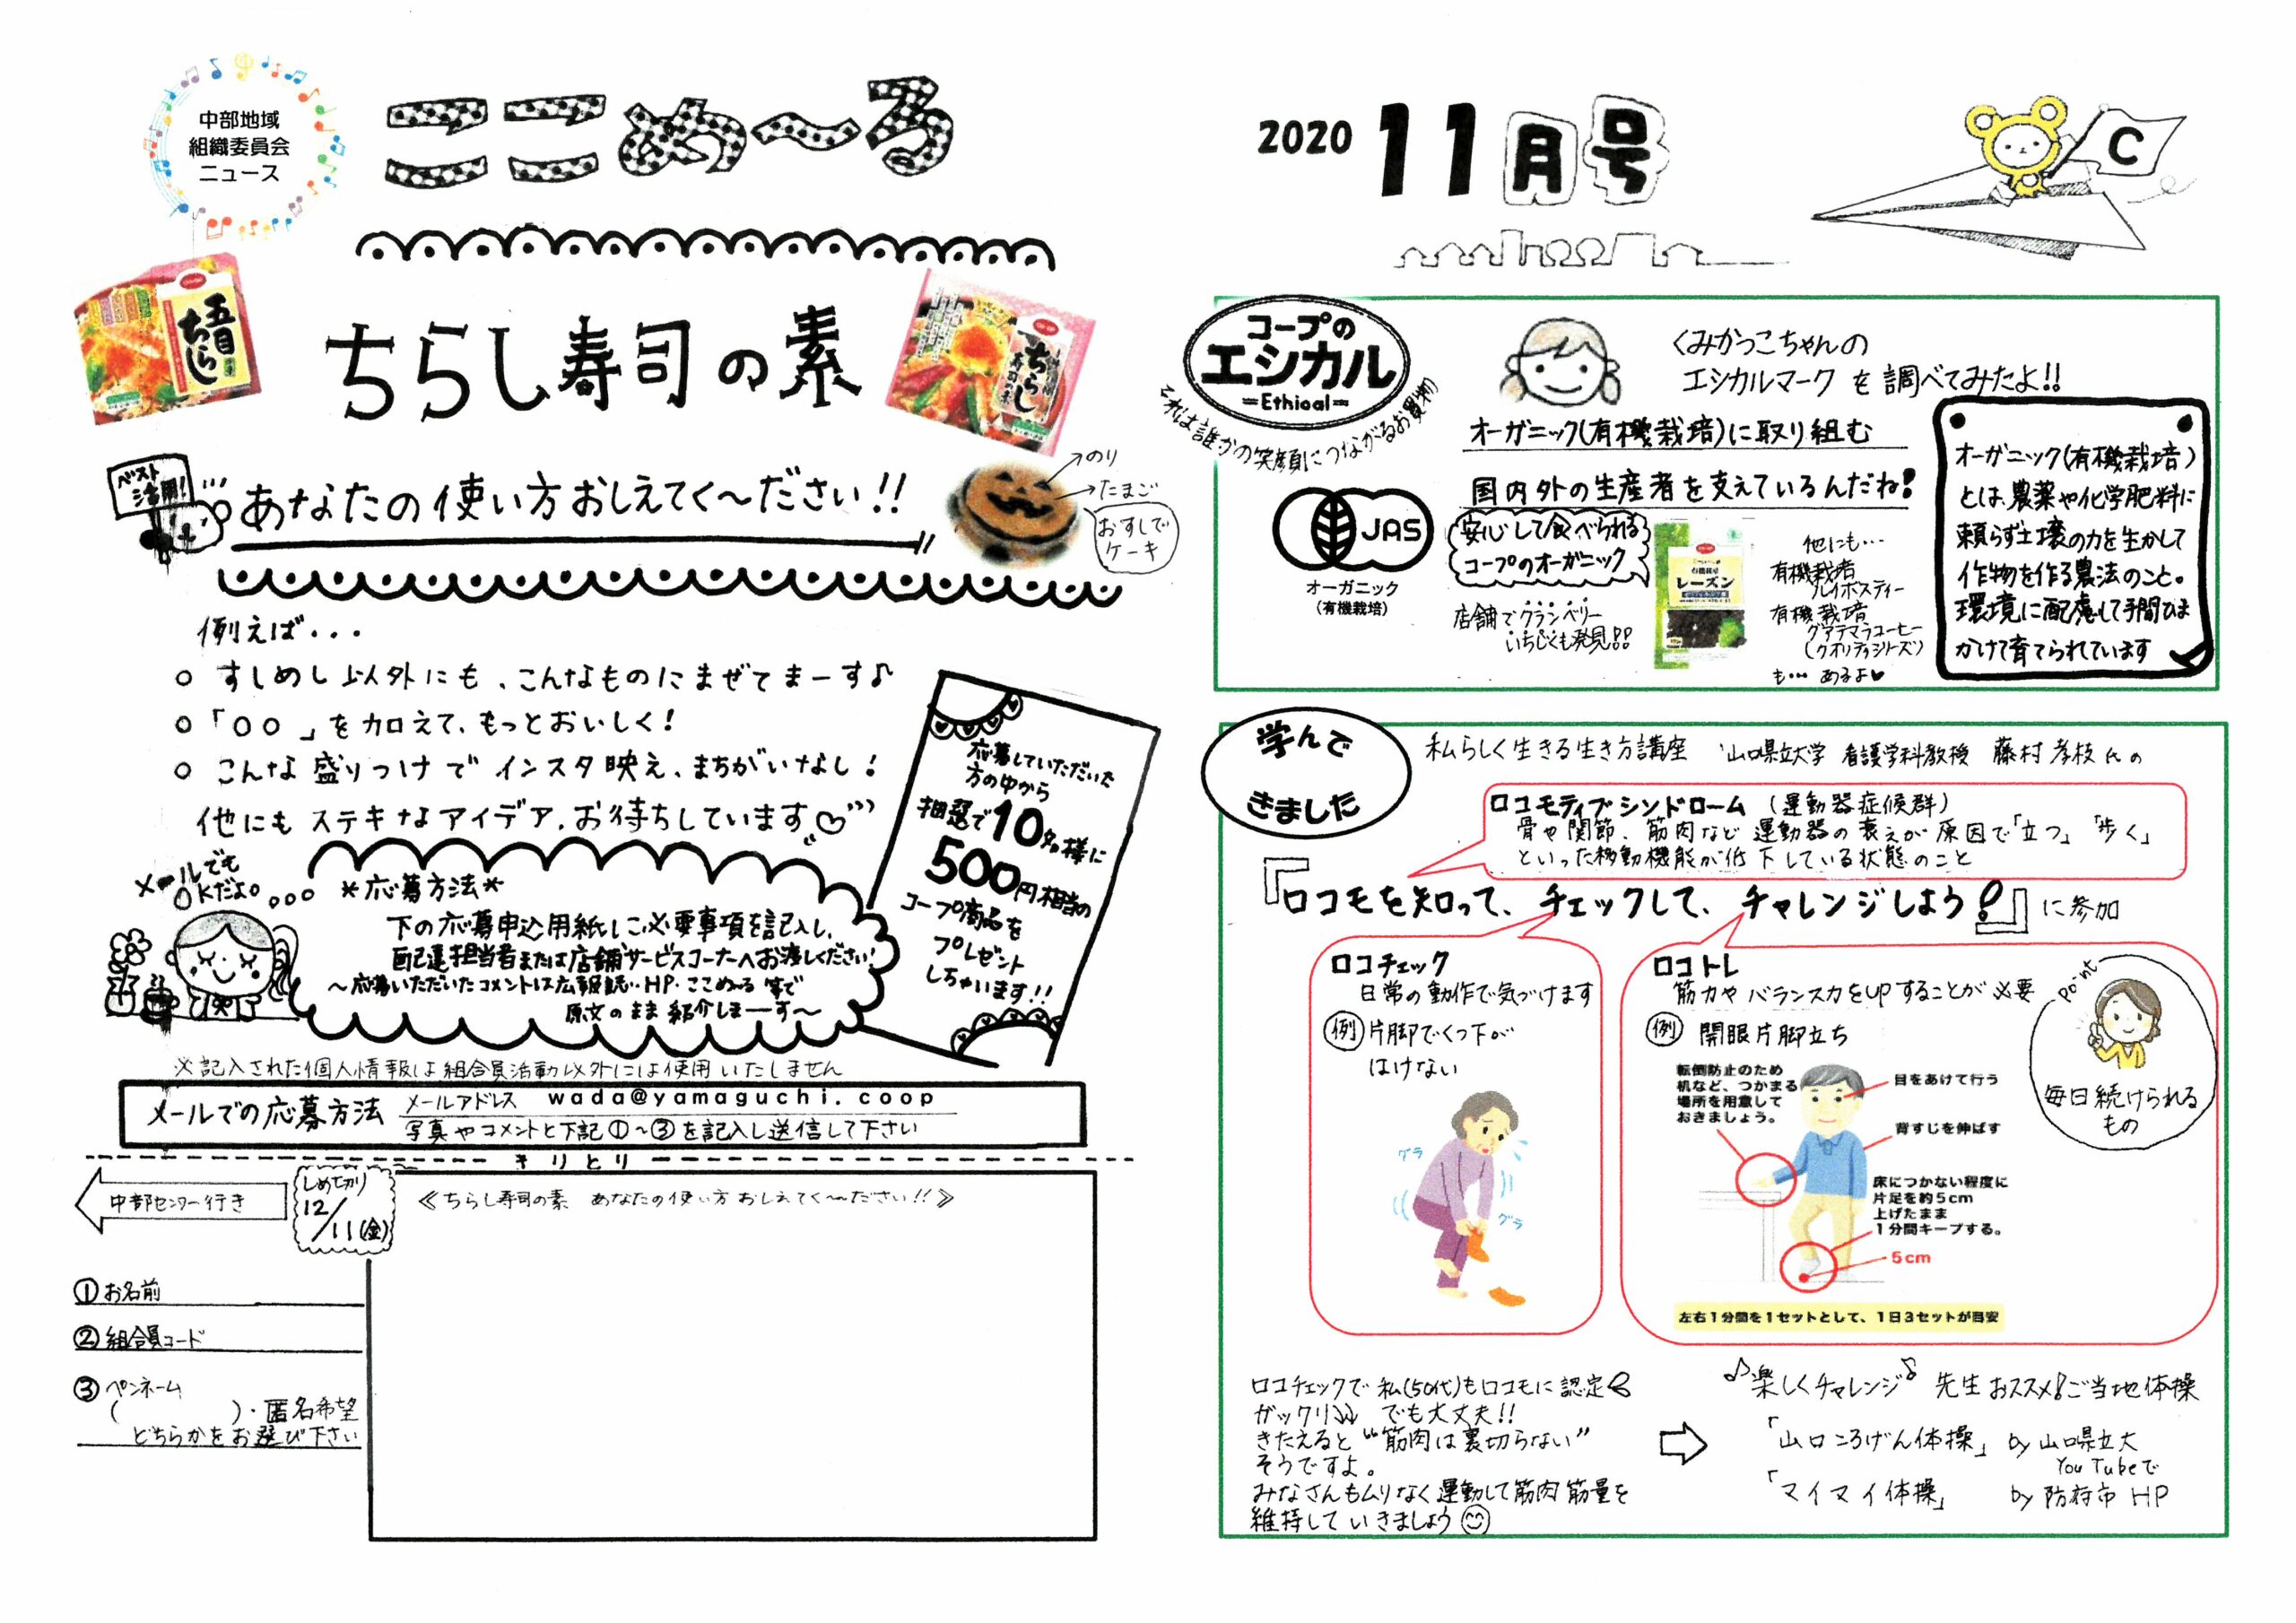 中部地域
組織委員会
ニュース
ここめ～る
2020 11月号
C
五目
ちらし
ちらし寿司の素
ちらし
寿司の素
ベスト
活用!
あなたの使い方おしえてく～ださい!!
のり
たまご
おすしで
ケーキ
例えば・・・
○ すしめし以外にも、こんなものにまぜてまーす♪
○ 「○○」を加えて、もっとおいしく!
○ こんな盛りつけでインスタ映え、まちがいなし!
他にもステキなアイデア、お待ちしています♡
応募していただいた
方の中から
抽選で10名様に
500円相当の
コープ商品を
プレゼント
しちゃいます!!
メールでも
OKだよ。
*応募方法*
下の応募申込用紙に必要事項を記入し、
配達担当者または店舗サービスコーナーへお渡しください!
～応募いただいたコメントは広報誌・HP・ここめ～る等で
原文のまま紹介しまーす～
※記入された個人情報は組合員活動以外には使用いたしません
メールでの応募方法
メールアドレス wada@yamaguchi.coop
写真やコメントと下記①～③を記入し送信して下さい
キリとり
中部センター行き
しめ切り
12/11(金)
≪ちらし寿司の素 あなたの使い方おしえてく～ださい!!≫
①お名前
②組合員コード
③ペンネーム
( )・匿名希望
どちらかをお選び下さい
コープの
エシカル
=Ethical=
それは誰かの笑顔につながるお買物
くみかっこちゃんの
エシカルマークを調べてみたよ!!
オーガニック(有機栽培)に取り組む
国内外の生産者を支えているんだね!
JAS
オーガニック
(有機栽培)
安心して食べられる
コープのオーガニック
店舗でクランベリー
いちじくも発見!!
有機栽培
レーズン
他にも…
有機栽培
ルイボスティー
有機栽培
グアテマラコーヒー
(クオリティシリーズ)
も… あるよ♥
オーガニック(有機栽培)
とは、農薬や化学肥料に
頼らず土壌の力を生かして
作物を作る農法のこと。
環境に配慮して手間ひま
かけて育てられています
学んで
きました
私らしく生きる生き方講座 山口県立大学 看護学科教授 藤村孝枝氏の
ロコモティブシンドローム (運動器症候群)
骨や関節、筋肉など運動器の衰えが原因で「立つ」「歩く」
といった移動機能が低下している状態のこと
『ロコモを知って、チェックして、チャレンジしよう!』に参加
ロコチェック
日常の動作で気づけます
例 片脚でくつ下が
はけない
グラ
グラ
ロコトレ
筋力やバランス力をUPすることが必要
例 開眼片脚立ち
転倒防止のため
机など、つかまる
場所を用意して
おきましょう。
目をあけて行う
背すじを伸ばす
床につかない程度に
片足を約5cm
上げたまま
1分間キープする。
5cm
左右1分間を1セットとして、1日3セットが目安
Point
毎日続けられる
もの
ロコチェックで私(50代)もロコモに認定
ガックリ でも大丈夫!!
きたえると“筋肉は裏切らない”
そうですよ。
みなさんもムリなく運動して筋肉筋量を
維持していきましょう
♪楽しくチャレンジ♪ 先生おススメ!ご当地体操
「山口ころげん体操」 by 山口県立大
YouTubeで
「マイマイ体操」 by 防府市HP